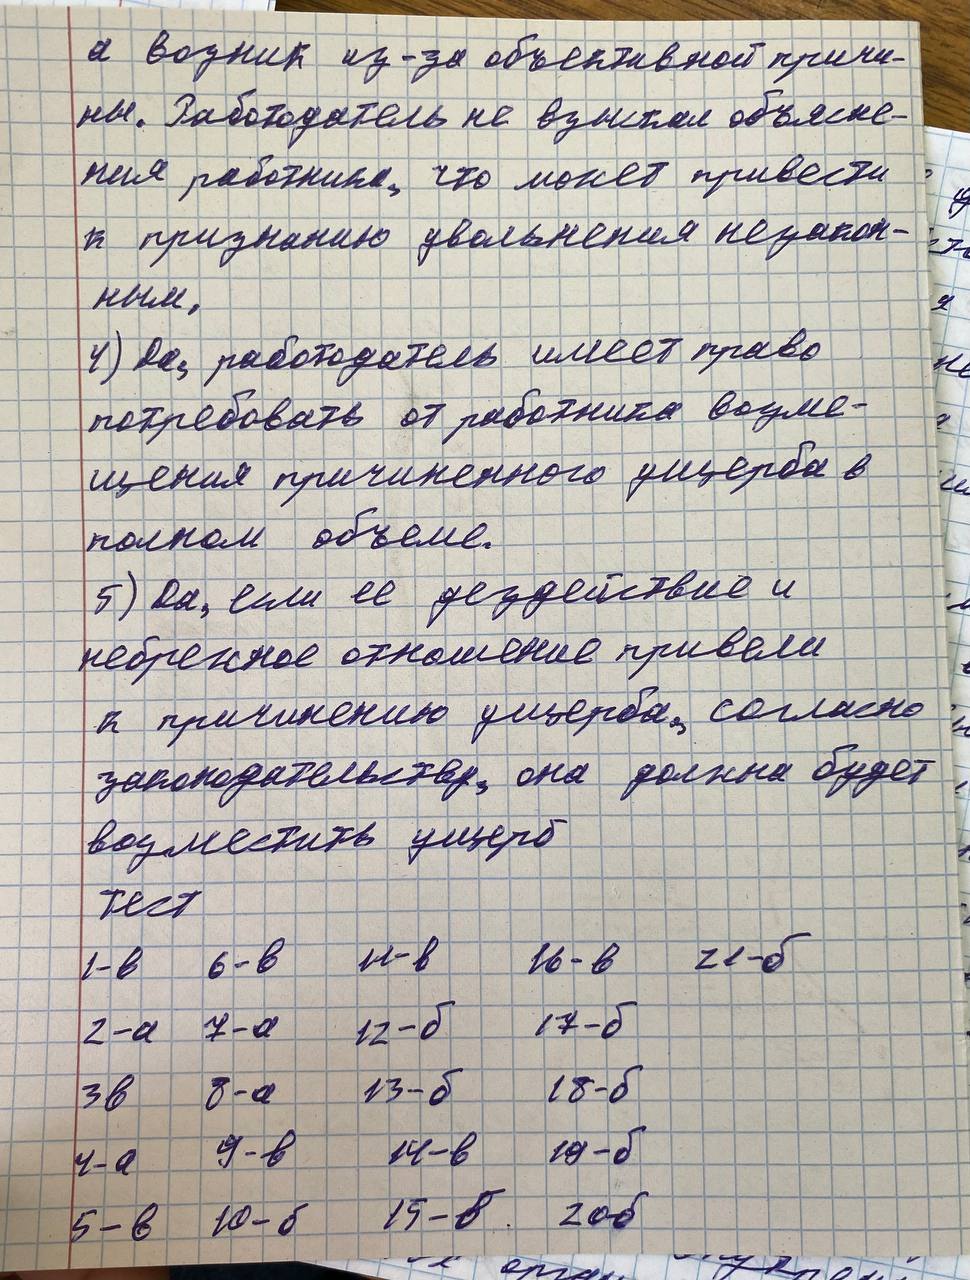 а возник из-за объективной причи-
ны. Работодатель не взыскал объясне-
ния работника, что может привести
к признанию увольнения незакон-
ным.
4) Да, работодатель имеет право
потребовать от работника возме-
щения причиненного ущерба в
полном объеме.
5) Да, если ее дездействие и
небрежное отношение привели
к причинению ущерба, согласно
законодательству, она должна будет
возместить ущерб
тест
1-в 6-в 11-в 16-в 21-б
2-а 7-а 12-б 17-б
3в 8-а 13-б 18-б
4-а 9-в 14-в 19-б
5-в 10-б 15-б 20б